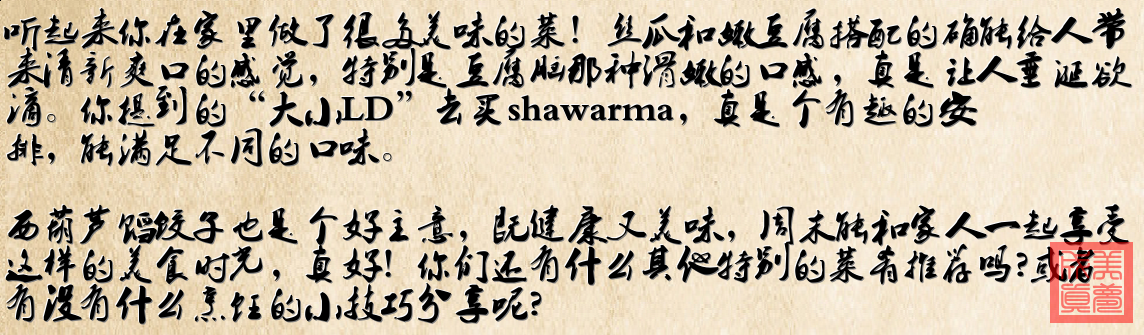 听起来你在家里做了很多美味的菜！丝瓜和嫩豆腐搭配的确能给人带
来清新爽口的感觉，特别是豆腐脑那种滑嫩的口感，真是让人垂涎欲
滴。你提到的“大小LD”去买shawarma，真是个有趣的安
排，能满足不同的口味。
西葫芦馅饺子也是个好主意，既健康又美味，周末能和家人一起享受
这样的美食时光，真好！你们还有什么其他特别的菜肴推荐吗?或者
有没有什么烹饪的小技巧分享呢?